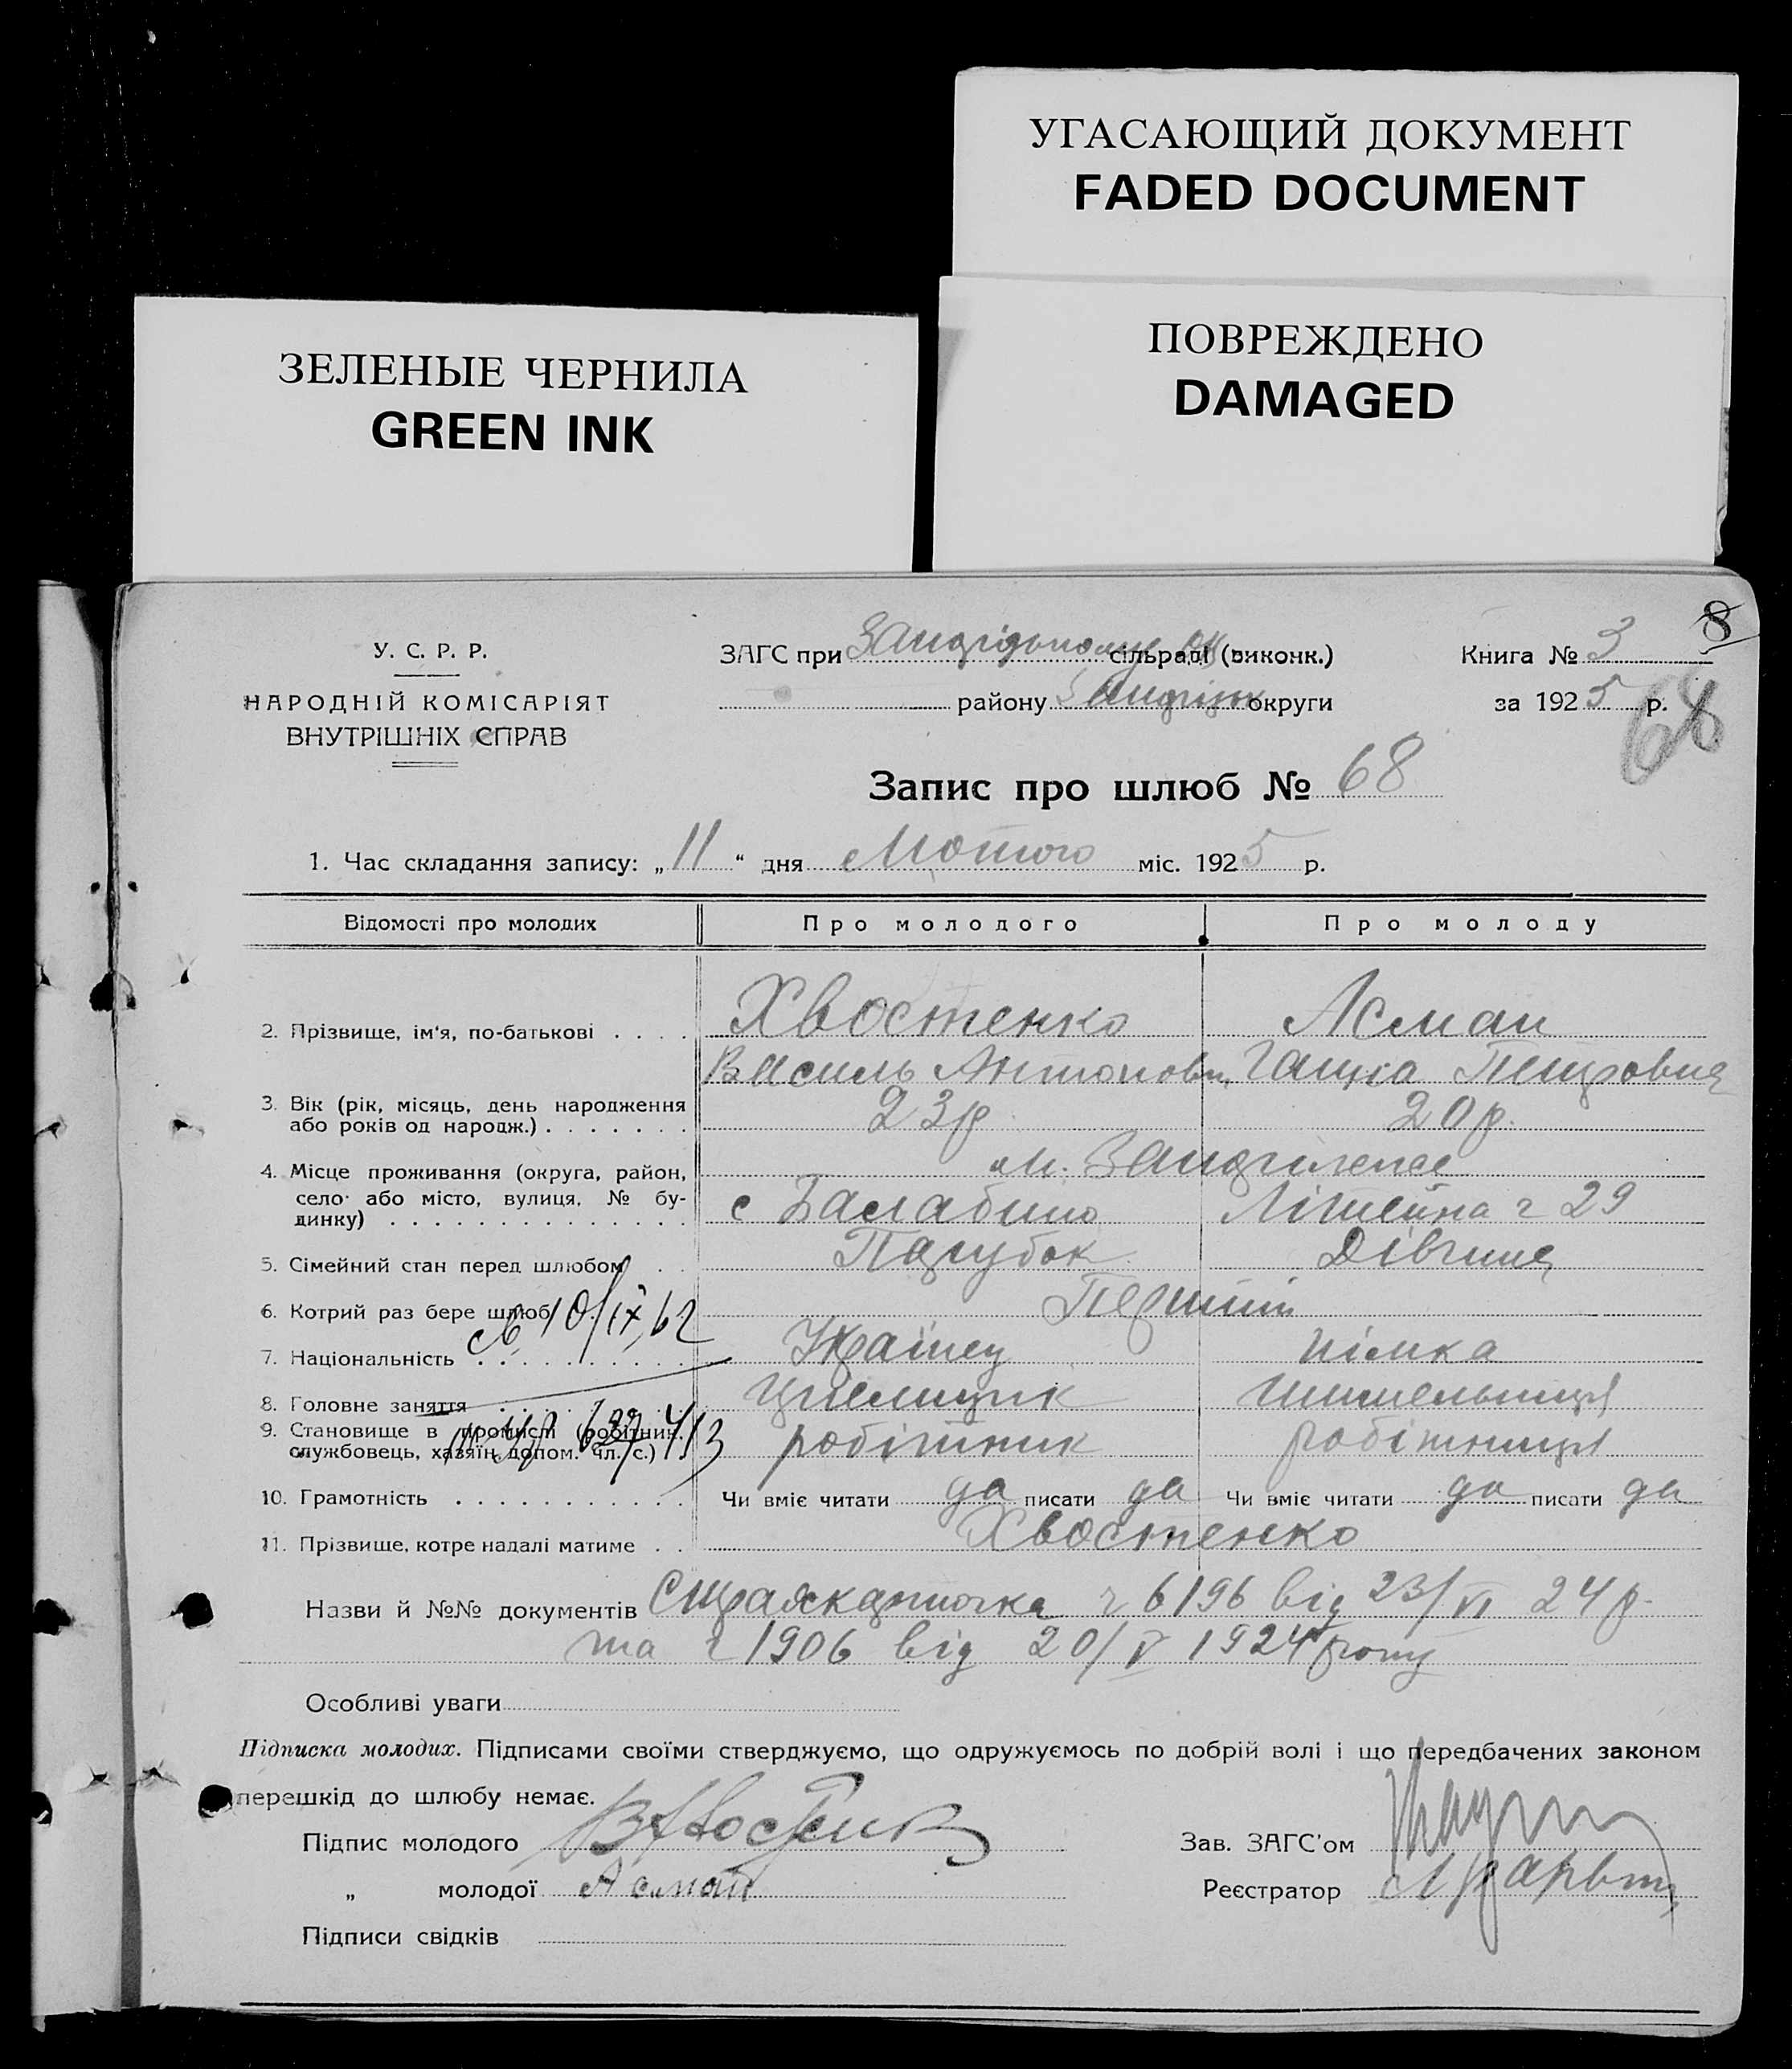 УГАСАЮЩИЙ ДОКУМЕНТ
FADED DOCUMENT
ПОВРЕЖДЕНО
DAMAGED
ЗЕЛЕНЫЕ ЧЕРНИЛА
GREEN INK
8
У. С. Р. Р.
НАРОДНІЙ КОМІСАРІЯТ
ВНУТРІШНІХ СПРАВ
ЗАГС при сільраді (виконк.)
району округи
Книга № 3
за 1925 р.
68
Запис про шлюб № 68
1. Час складання запису: „11“ дня Лютого міс. 1925 р.
Відомості про молодих Про молодого Про молоду
2. Прізвище, ім'я, по-батькові Хвостенко Асман
Василь Антонови Ганна Петровна
3. Вік (рік, місяць, день народження
або років од народж.) 23р 20р.
4. Місце проживання (округа, район, м. Запоріжжє
село або місто, вулиця, № бу-
динку) с Балабино Літейна ч 29
5. Сімейний стан перед шлюбом Парубок Дівчина
6. Котрий раз бере шлюб Перший
10/IX,62
7. Національність Українец німка
8. Головне заняття
9. Становище в промислі (робітник,
службовець, хазяїн, допом. чл. с.) робітник робітниця
10. Грамотність Чи вміє читати да писати да Чи вміє читати да писати да
11. Прізвище, котре надалі матиме Хвостенко
Назви й №№ документів Страхкарточка ч 6196 від 23/VI 24р.
та ч 1906 від 20/V 1924 року
Особливі уваги
Підписка молодих. Підписами своїми стверджуємо, що одружуємось по добрій волі і що передбачених законом
перешкід до шлюбу немає.
Підпис молодого
„ молодої Асман
Підписи свідків
Зав. ЗАГС'ом
Реєстратор